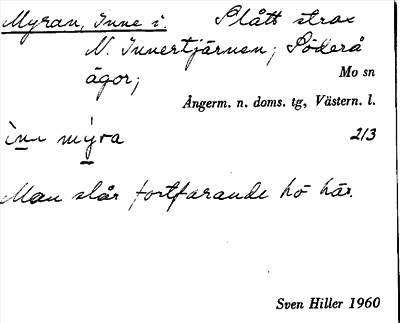 Myran, Inne i. Slått strax
N. Innertjärnen; Söderå
ägor; Mo sn
Ångerm. n. doms. tg, Västern. l.
ìnn mýra 2/3
Man slår fortfarande hö här.
Sven Hiller 1960